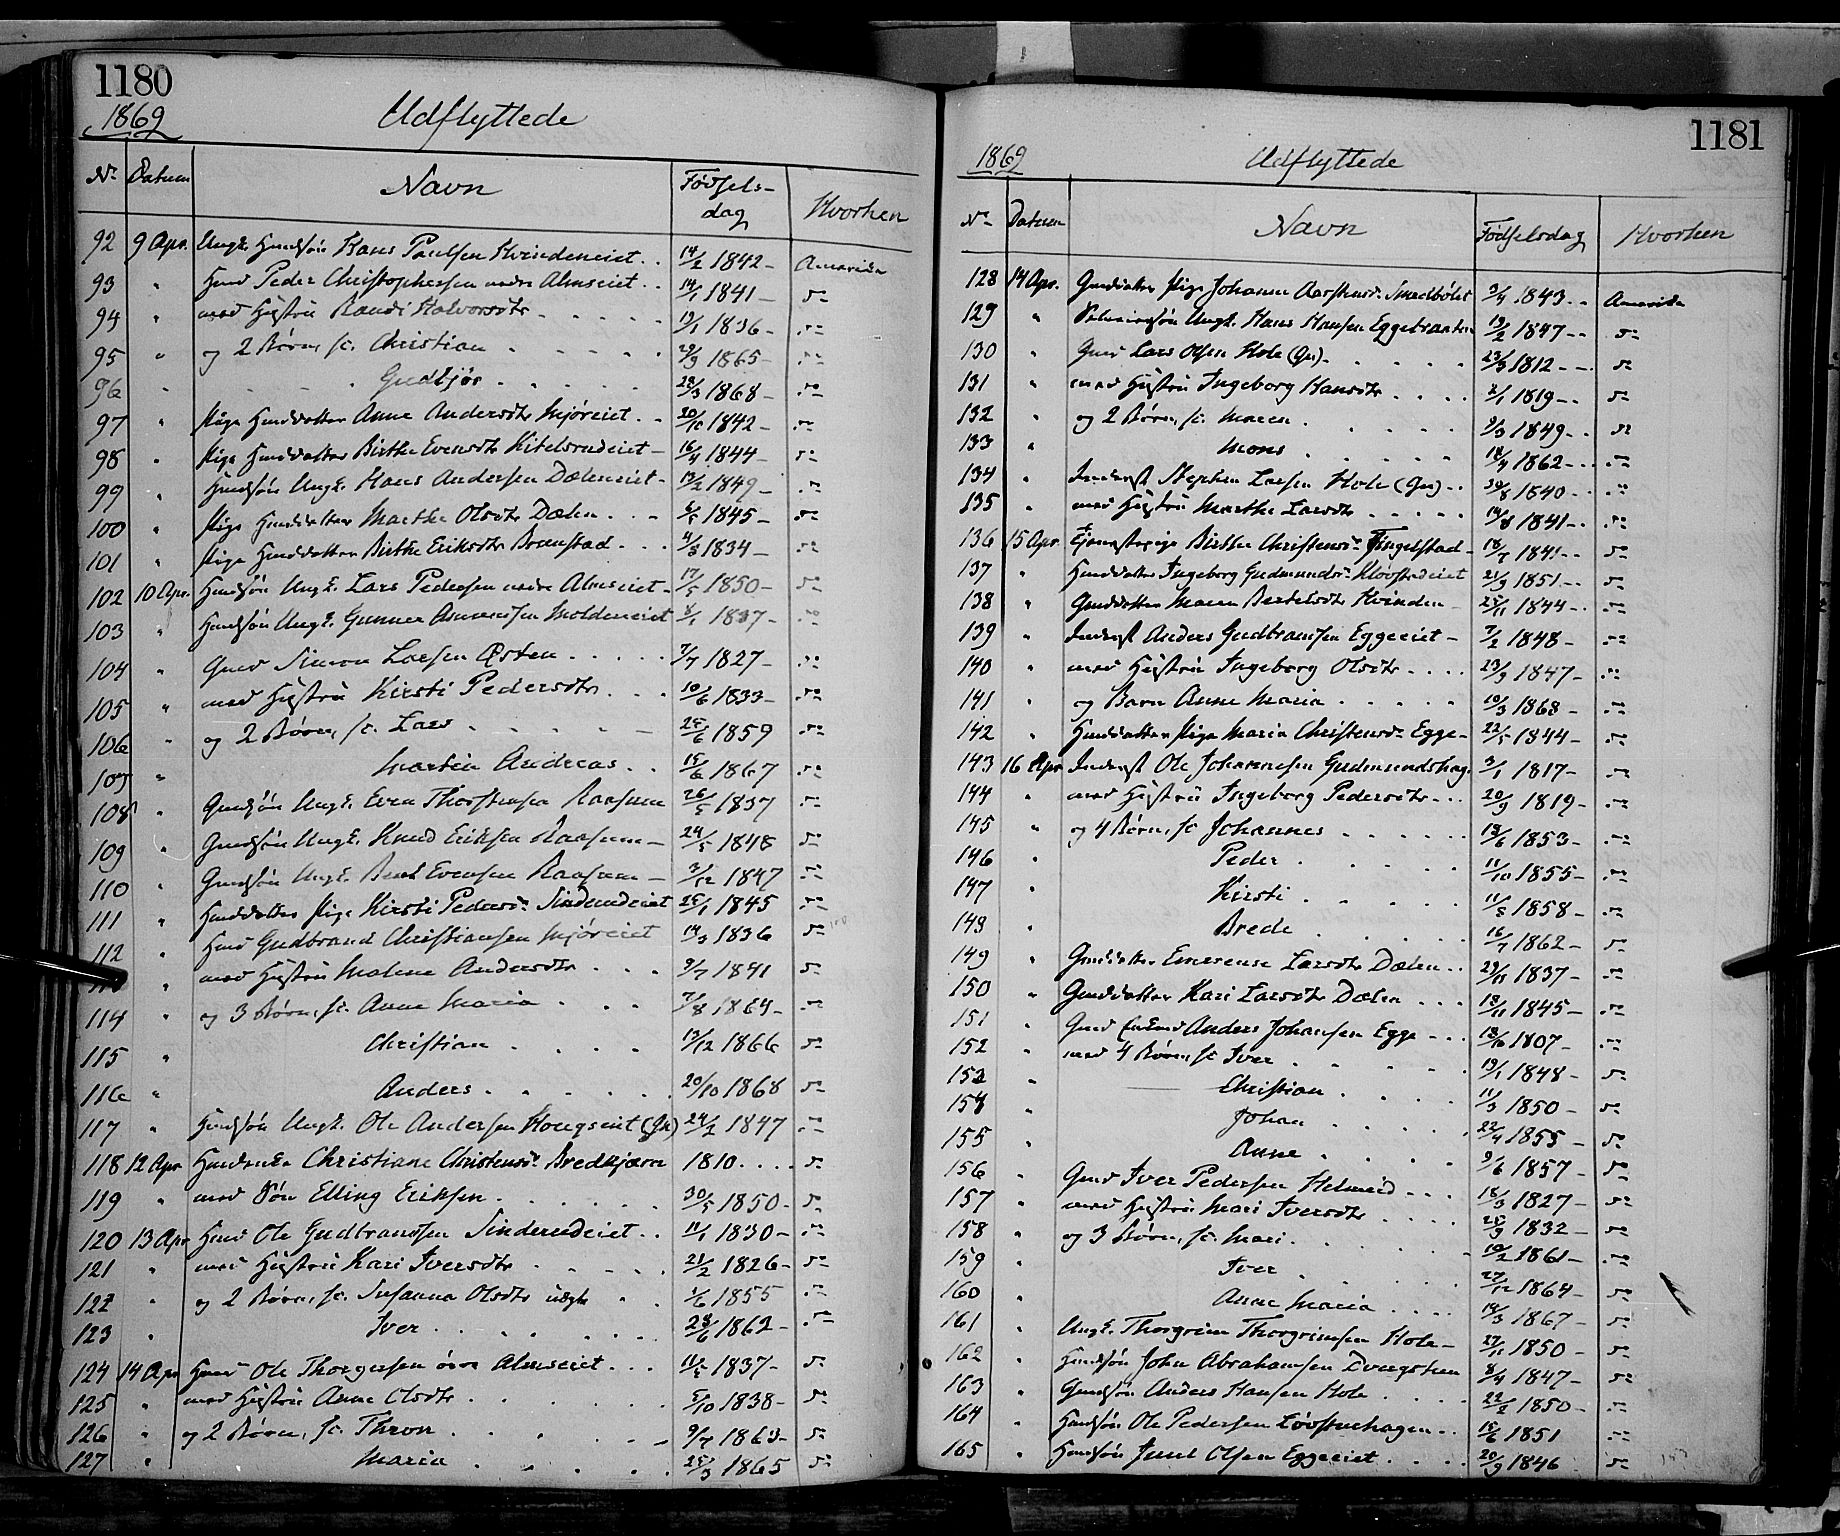 1180
1869 Udflyttede
No Datum Navn Fødsels-dag Hvorhen
92 9 Apr. Ungk. Husmsøn Hans Paulsen Hvindeneiet 14/2 1842 Amerika
93 " Husmd Peder Christophersen nedre Almseiet 14/1 1841 do
94 " med Hustru Randi Halvorsdtr 13/1 1836 do
95 " og 2 Børn, sc. Christian 29/9 1865 do
96 " Gudbjør 28/3 1868 do
97 " Pige Husmdatter Anne Andersdtr Mjøreiet 20/10 1842 do
98 " Pige Husmdatter Birthe Evensdtr Kitelsrudeiet 16/4 1844 do
99 " Husmsøn Ungk. Hans Andersen Dæleneiet 13/2 1849 do
100 " Pige Husmdatter Marthe Olsdtr Dælen 1845 do
101 " Pige Husmdatter Birthe Eriksdtr Branstad 1834 do
102 10 Apr. Husmsøn Ungk. Lars Pedersen nedre Almseiet 17/5 1850 do
103 " Husmsøn Ungk. Gunner Moldeneiet 1837 do
104 " Gmd Simon Larsen Østen 7/7 1827 do
105 " med Hustru Kirsti Pedersdtr 10/6 1833 do
106 " og 2 Børn, sc. Lars 25/6 1859 do
107 " Martin Andreas 15/6 1867 do
108 " Gmdsøn Ungk. Even Thorstensen Raasum 26/5 1837 do
109 " Gmdsøn Ungk. Knud Eriksen Raasum 24/5 1848 do
110 " Gmdsøn Ungk. Evensen Raasum 3/12 1847 do
111 " Husmdatter Pige Kirsti Pedersdr Sinderudeiet 25/1 1845 do
112 " Husmd Gudbrand Christiansen Mjøreiet 14/3 1836 do
" med Hustru Malene Andersdtr 9/7 1841 do
114 " og 3 Børn, sc. Anne Maria 7/8 1864 do
115 " Christian 17/12 1866 do
116 " Anders 20/10 1868 do
117 " Husmsøn Ungk. Ole Andersen Haugseiet (Gr) 24/2 1847 do
118 12 Apr Husmdenke Christiane Christensdr Bredkjærn 1810 do
119 " med Søn Elling Eriksen 30/5 1850 do
120 13 Apr Husmd Ole Gudbransen Sinderudeiet 11/1 1830 do
121 " med Hustru Kari Iversdtr 21/2 1826 do
122 " og 2 Børn, sc. Susanna Olsdtr uægte 1/6 1855 do
123 " Iver 28/6 1862 do
124 14 Apr Husmd Ole Thorgersen øvre Almseiet 1837 do
125 " med Hustru Anne Olsdtr 5/10 1838 do
126 " og 2 Børn, sc. Thron 9/7 1863 do
127 " Maria 25/3 1865 do
1181
1869 Udflyttede
No Datum Navn Fødselsdag Hvorhen
128 14 Apr. Gmdsdatter Pige Johanne Aarstensdr. Smedbølet 3/4 1843 Amerika
129 " Ungk. Hans Hansen Eggebraaten 19/2 1847 do
130 " Gmd Lars Olsen Hole (Gr) 23/3 1812 do
131 " med Hustru Ingeborg Hansdtr 2/1 1819 do
132 " og 2 Børn, sc. Maren 9/3 1849 do
133 " Mons 18/4 1862 do
134 " Inderst Stephen Larsen Hole (Gr) 30/8 1840 do
135 " med Hustru Marthe Larsdtr 14/8 1841 do
136 15 Apr. Tjenestepige Birthe Christensdr Tingelstad 18/7 1841 do
137 " Husmdatter Ingeborg Gudmundsdr Kløvstadeiet 21/9 1851 do
138 " Gmddatter Maren Bertelsdtr Hvinden 25/11 1844 do
139 " Inderst Anders Gudbransen Eggeeiet 7/2 1848 do
140 " med Hustru Ingeborg Olsdtr 23/9 1847 do
141 " og Barn Anne Maria 10/3 1868 do
142 " Husmdatter Pige Maria Christensdr Egge 22/5 1844 do
143 16 Apr Inderst Ole Johannesen Gudmundshag. 3/1 1817 do
144 " med Hustru Ingeborg Pedersdtr 20/9 1819 do
145 " og 4 Børn, sc Johannes 13/6 1853 do
146 " Peder 11/10 1855 do
147 " Kirsti 11/5 1858 do
148 " Brede 16/7 1862 do
149 " Gmddatter Emerense Larsdtr Dælen 1837 do
150 " Gmddatter Kari Larsdtr Dælen 18/11 1845 do
151 " Gmd Enkemd Anders Johansen Egge 18/10 1807 do
152 " med 4 Børn, sc Iver 19/1 1848 do
153 " Christian 11/3 1850 do
154 " Johan 22/4 1855 do
155 " Anne 9/6 1857 do
156 Gmd Iver Pedersen Helmeid 18/3 1827 do
157 " med Hustru Mari Iversdtr 25/9 1832 do
158 " og 3 Børn, sc. Mari 10/2 1861 do
159 " Iver 27/12 1864 do
160 " Anne Maria 14/3 1867 do
161 " Ungk. Thorgrim Thorgrimsen Hole 27/1 1850 do
162 " Husmsøn John Abrahamsen Dvergsten 8/4 1847 do
163 " Gmdsøn Anders Hansen Hole 22/2 1850 do
164 " Husmsøn Ole Pedersen Løvstuehagen 15/6 1851 do
165 " Husmsøn Juul Olsen Eggeeiet 20/9 1846 do